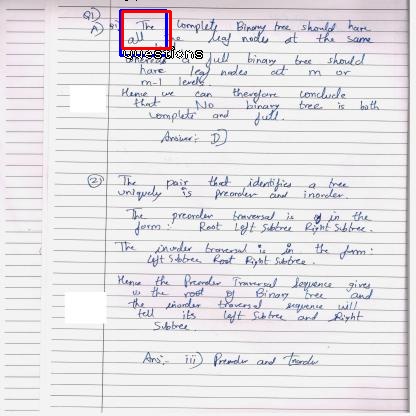 Q1)
A) The complete Binary tree should have
all the leaf nodes at the same
Questions
whereas a full binary tree should
have leaf nodes at m or
m-1 levels.
Hence we can therefore conclude
that No binary tree is both
complete and full.
Answer:- D)
(2) The pair that identifies a tree
uniquely is preorder and inorder.
The preorder traversal is in the
form: Root Left Subtree Right Subtree.
The inorder traversal is in the form:
Left Subtree Root Right Subtree.
Hence the Preorder Traversal Sequence gives
us the root of Binary tree and
the inorder traversal sequence will
tell its Left Subtree and Right
Subtree
Ans:- iii) Preorder and Inorder